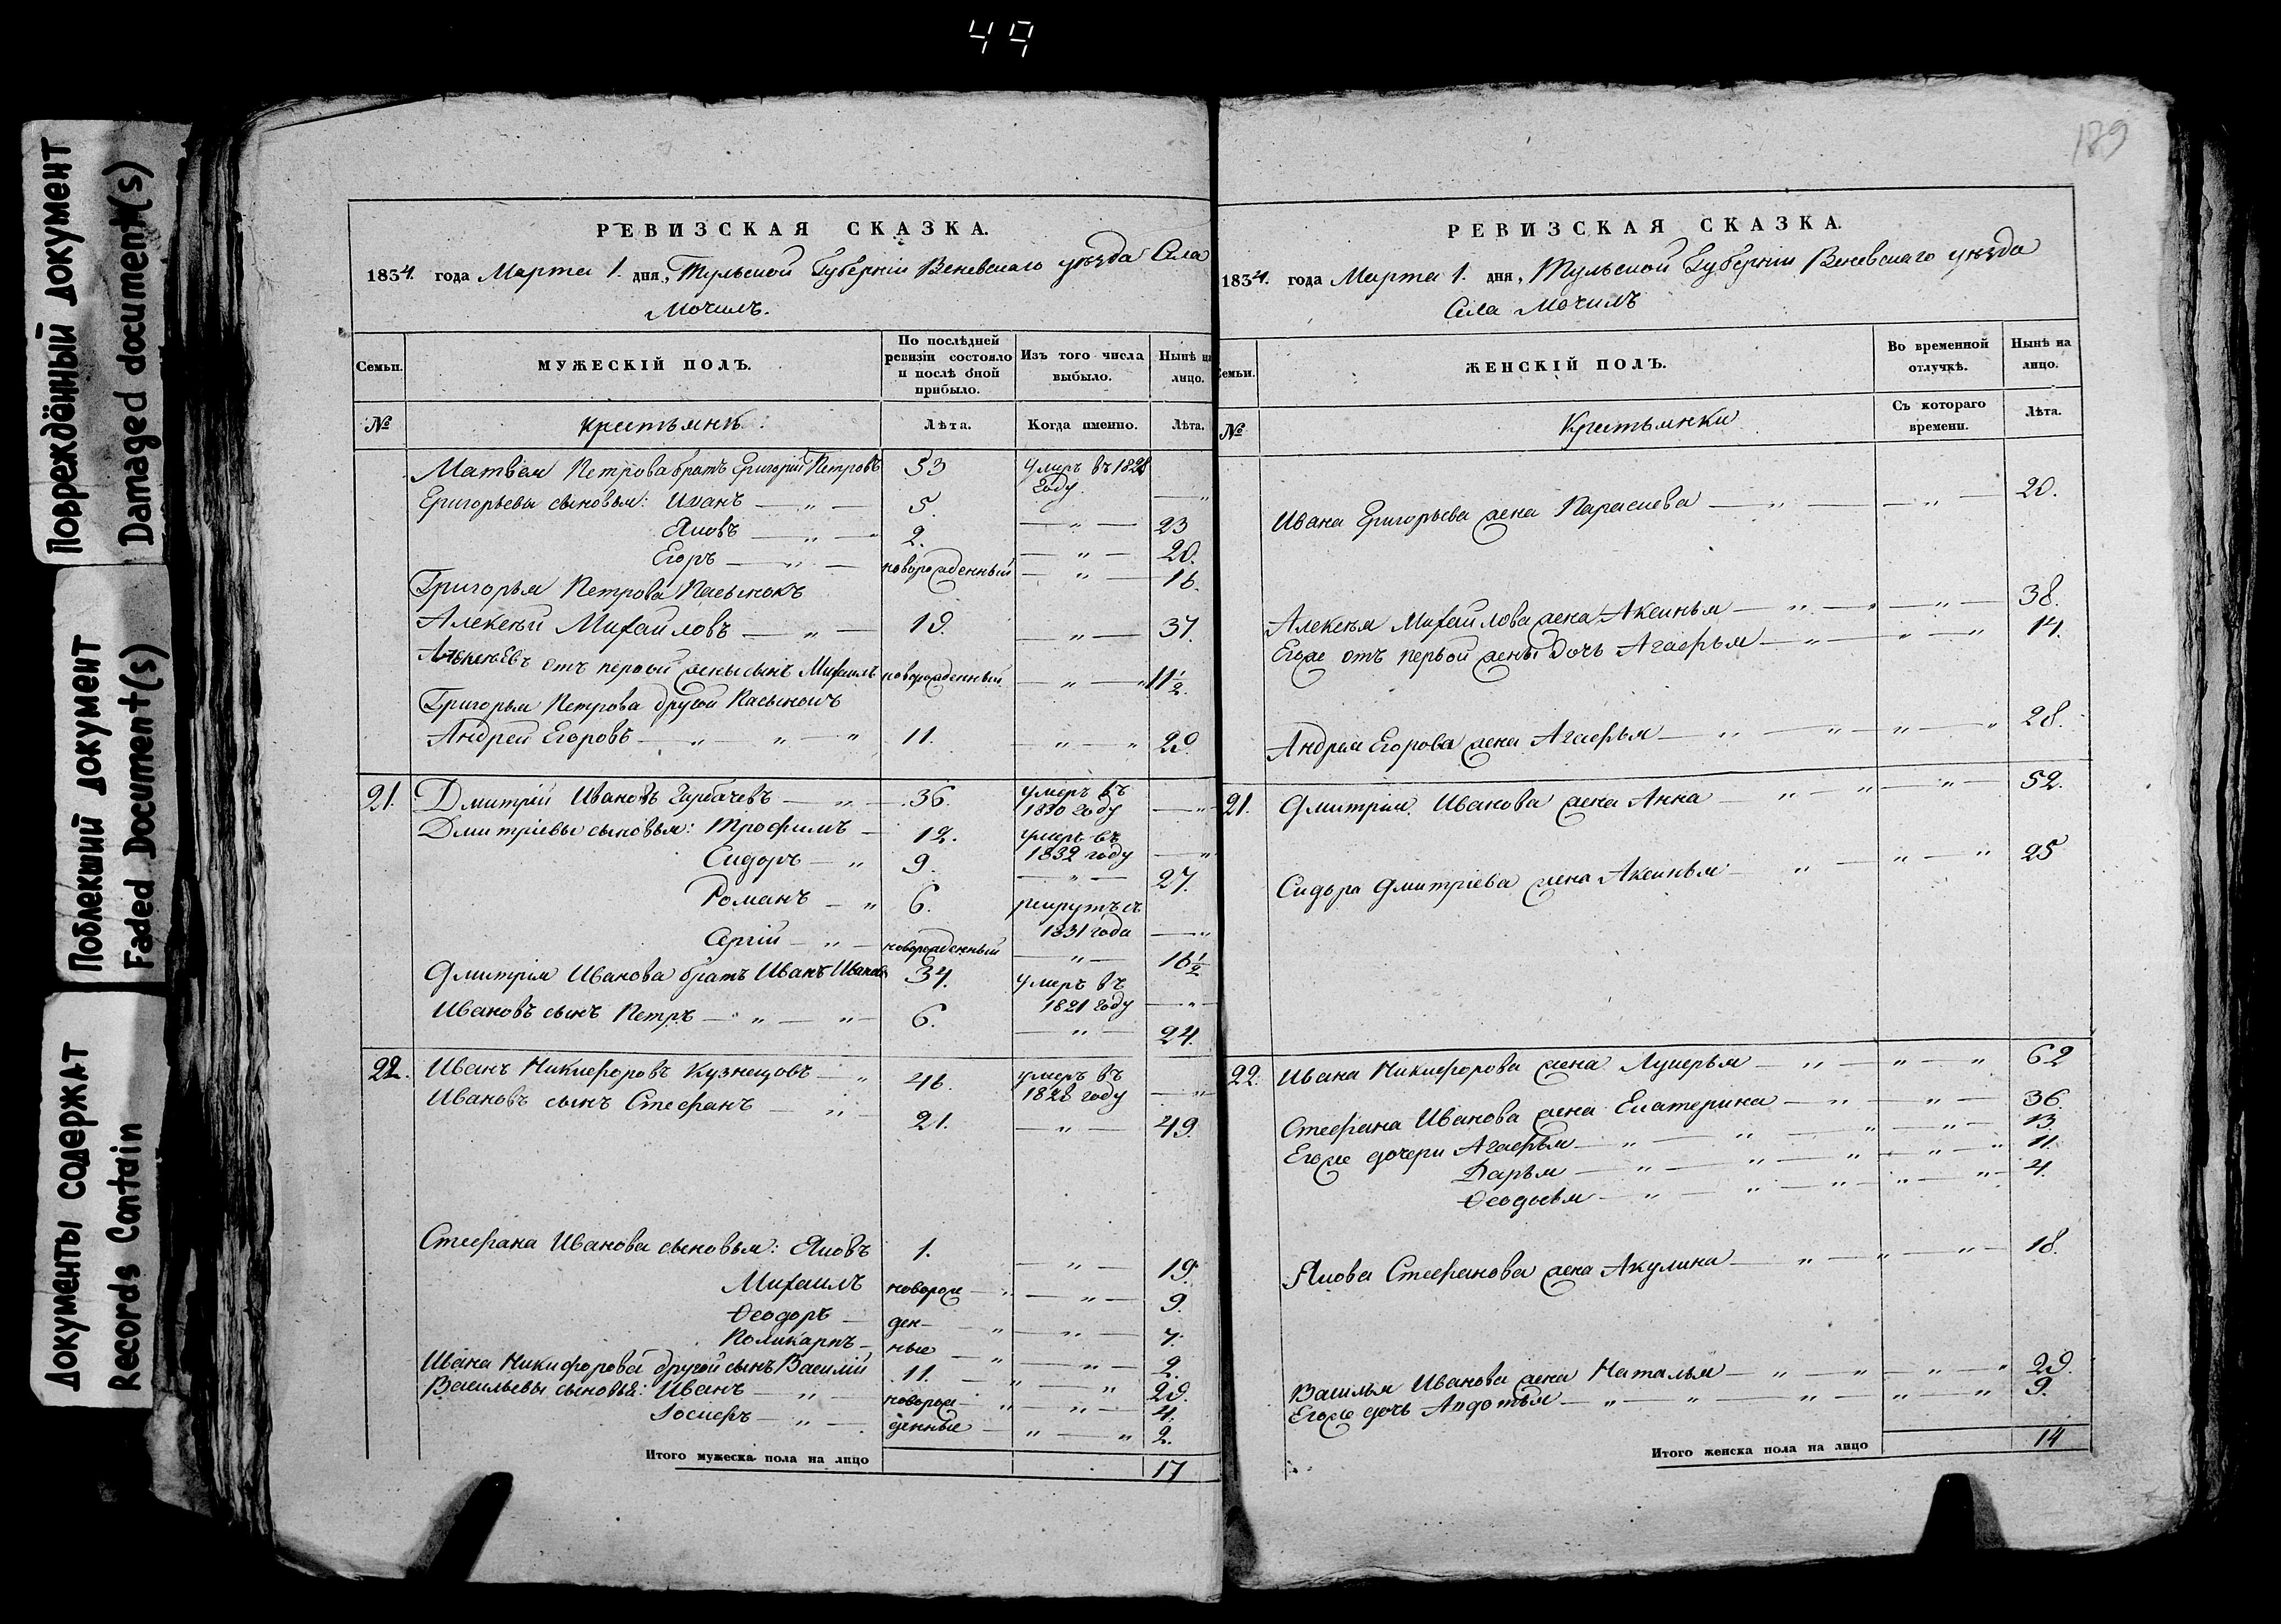 49
189
Повреждённый документ
Damaged document(s)
Поблекший документ
Faded Document(s)
Документы содержат
Records Contain
РЕВИЗСКАЯ СКАЗКА.
1834. года Марта 1. дня, Тульской Губерніи Веневскаго уѣзда Села
Мочилъ.
Семьи.
МУЖЕСКІЙ ПОЛЪ.
По послѣдней ревизіи состояло и послѣ оной прибыло.
Изъ того числа выбыло.
Нынѣ на лицо.
№ Крестьянъ. Лѣта. Когда именно. Лѣта.
Матвѣя Петрова братъ Григорій Петровъ 53 умеръ въ 1828 году
Григорьевы сыновья: Иванъ — „ — 5. — „ — 23
Яковъ — „ — 2. — „ — 20.
Егоръ — „ — новорожденный — „ — 16.
Григорья Петрова Пасынокъ
Алексѣй Михайловъ — „ — 19. — „ — 37.
Алексѣевъ отъ первой жены сынъ Михаилъ новорожденный — „ — „ 11 1/2.
Григорья Петрова другой Пасынокъ
Андрей Егоровъ — „ „ — „ 11. — „ — „ 29.
21. Дмитрій Ивановъ Гарбачевъ — „ — 36. умеръ въ 1830 году — „
Дмитріевы сыновья: Трофимъ — 12. умеръ въ 1832 году — „
Сидоръ — „ 9. — „ — 27.
Романъ — „ 6. рекрутъ съ 1831 года — „
Сергій — „ — новорожденный — „ — 16 1/2
Дмитрія Иванова братъ Иванъ Ивановъ 34. умеръ въ 1821 году — „ —
Ивановъ сынъ Петръ — „ — „ — 6. — „ — 24.
22. Иванъ Никифоровъ Кузнецовъ — „ 46. умеръ въ 1828 году — „
Ивановъ сынъ Стефанъ — „ — 21. — „ — 49.
Стефана Иванова сыновья: Яковъ 1. — „ — 19.
Михаилъ новорож — „ — „ — 9.
Ѳеодоръ — ден — „ — „ — 7.
Поликарпъ — ные — „ „ — 2.
Ивана Никифорова другой сынъ Василій 11. — „ — „ 29.
Васильевы сыновья: Иванъ — „ — новорож — „ — „ — 4.
Іосифъ — „ — денные — „ — „ 2.
Итого мужеска пола на лицо 17
РЕВИЗСКАЯ СКАЗКА.
1834. года Марта 1. дня, Тульской Губерніи Веневскаго уѣзда
Села Мочилъ
Семьи.
ЖЕНСКІЙ ПОЛЪ.
Во временной отлучкѣ.
Нынѣ на лицо.
№ Крестьянки Съ котораго времени. Лѣта.
Ивана Григорьева жена Параскева — „ — — „ — 20.
Алексѣя Михайлова жена Аксинья — „ — „ — „ — 38.
Егоже отъ первой жены дочь Агафья — „ — „ — „ 14.
Андрея Егорова жена Агафья — „ — „ „ — „ 28.
21. Дмитрія Иванова жена Анна — „ — „ — „ — 52.
Сидора Дмитріева жена Аксинья — „ — „ — „ 25
22. Ивана Никифорова жена Лукерья — „ — „ — „ 62
Стефана Иванова жена Екатерина — „ — „ — 36.
Егоже дочери Агафья — „ — „ — „ — „ — 13.
Дарья — „ — „ — „ — „ — „ 11.
Ѳеодосья — „ — „ — „ — „ — „ — 4.
Якова Стефанова жена Акулина — „ — „ — „ — 18.
Василья Иванова жена Наталья — „ — „ — „ — „ 29.
Егоже дочь Авдотья — „ — „ — „ — „ — „ 9.
Итого женска пола на лицо 14